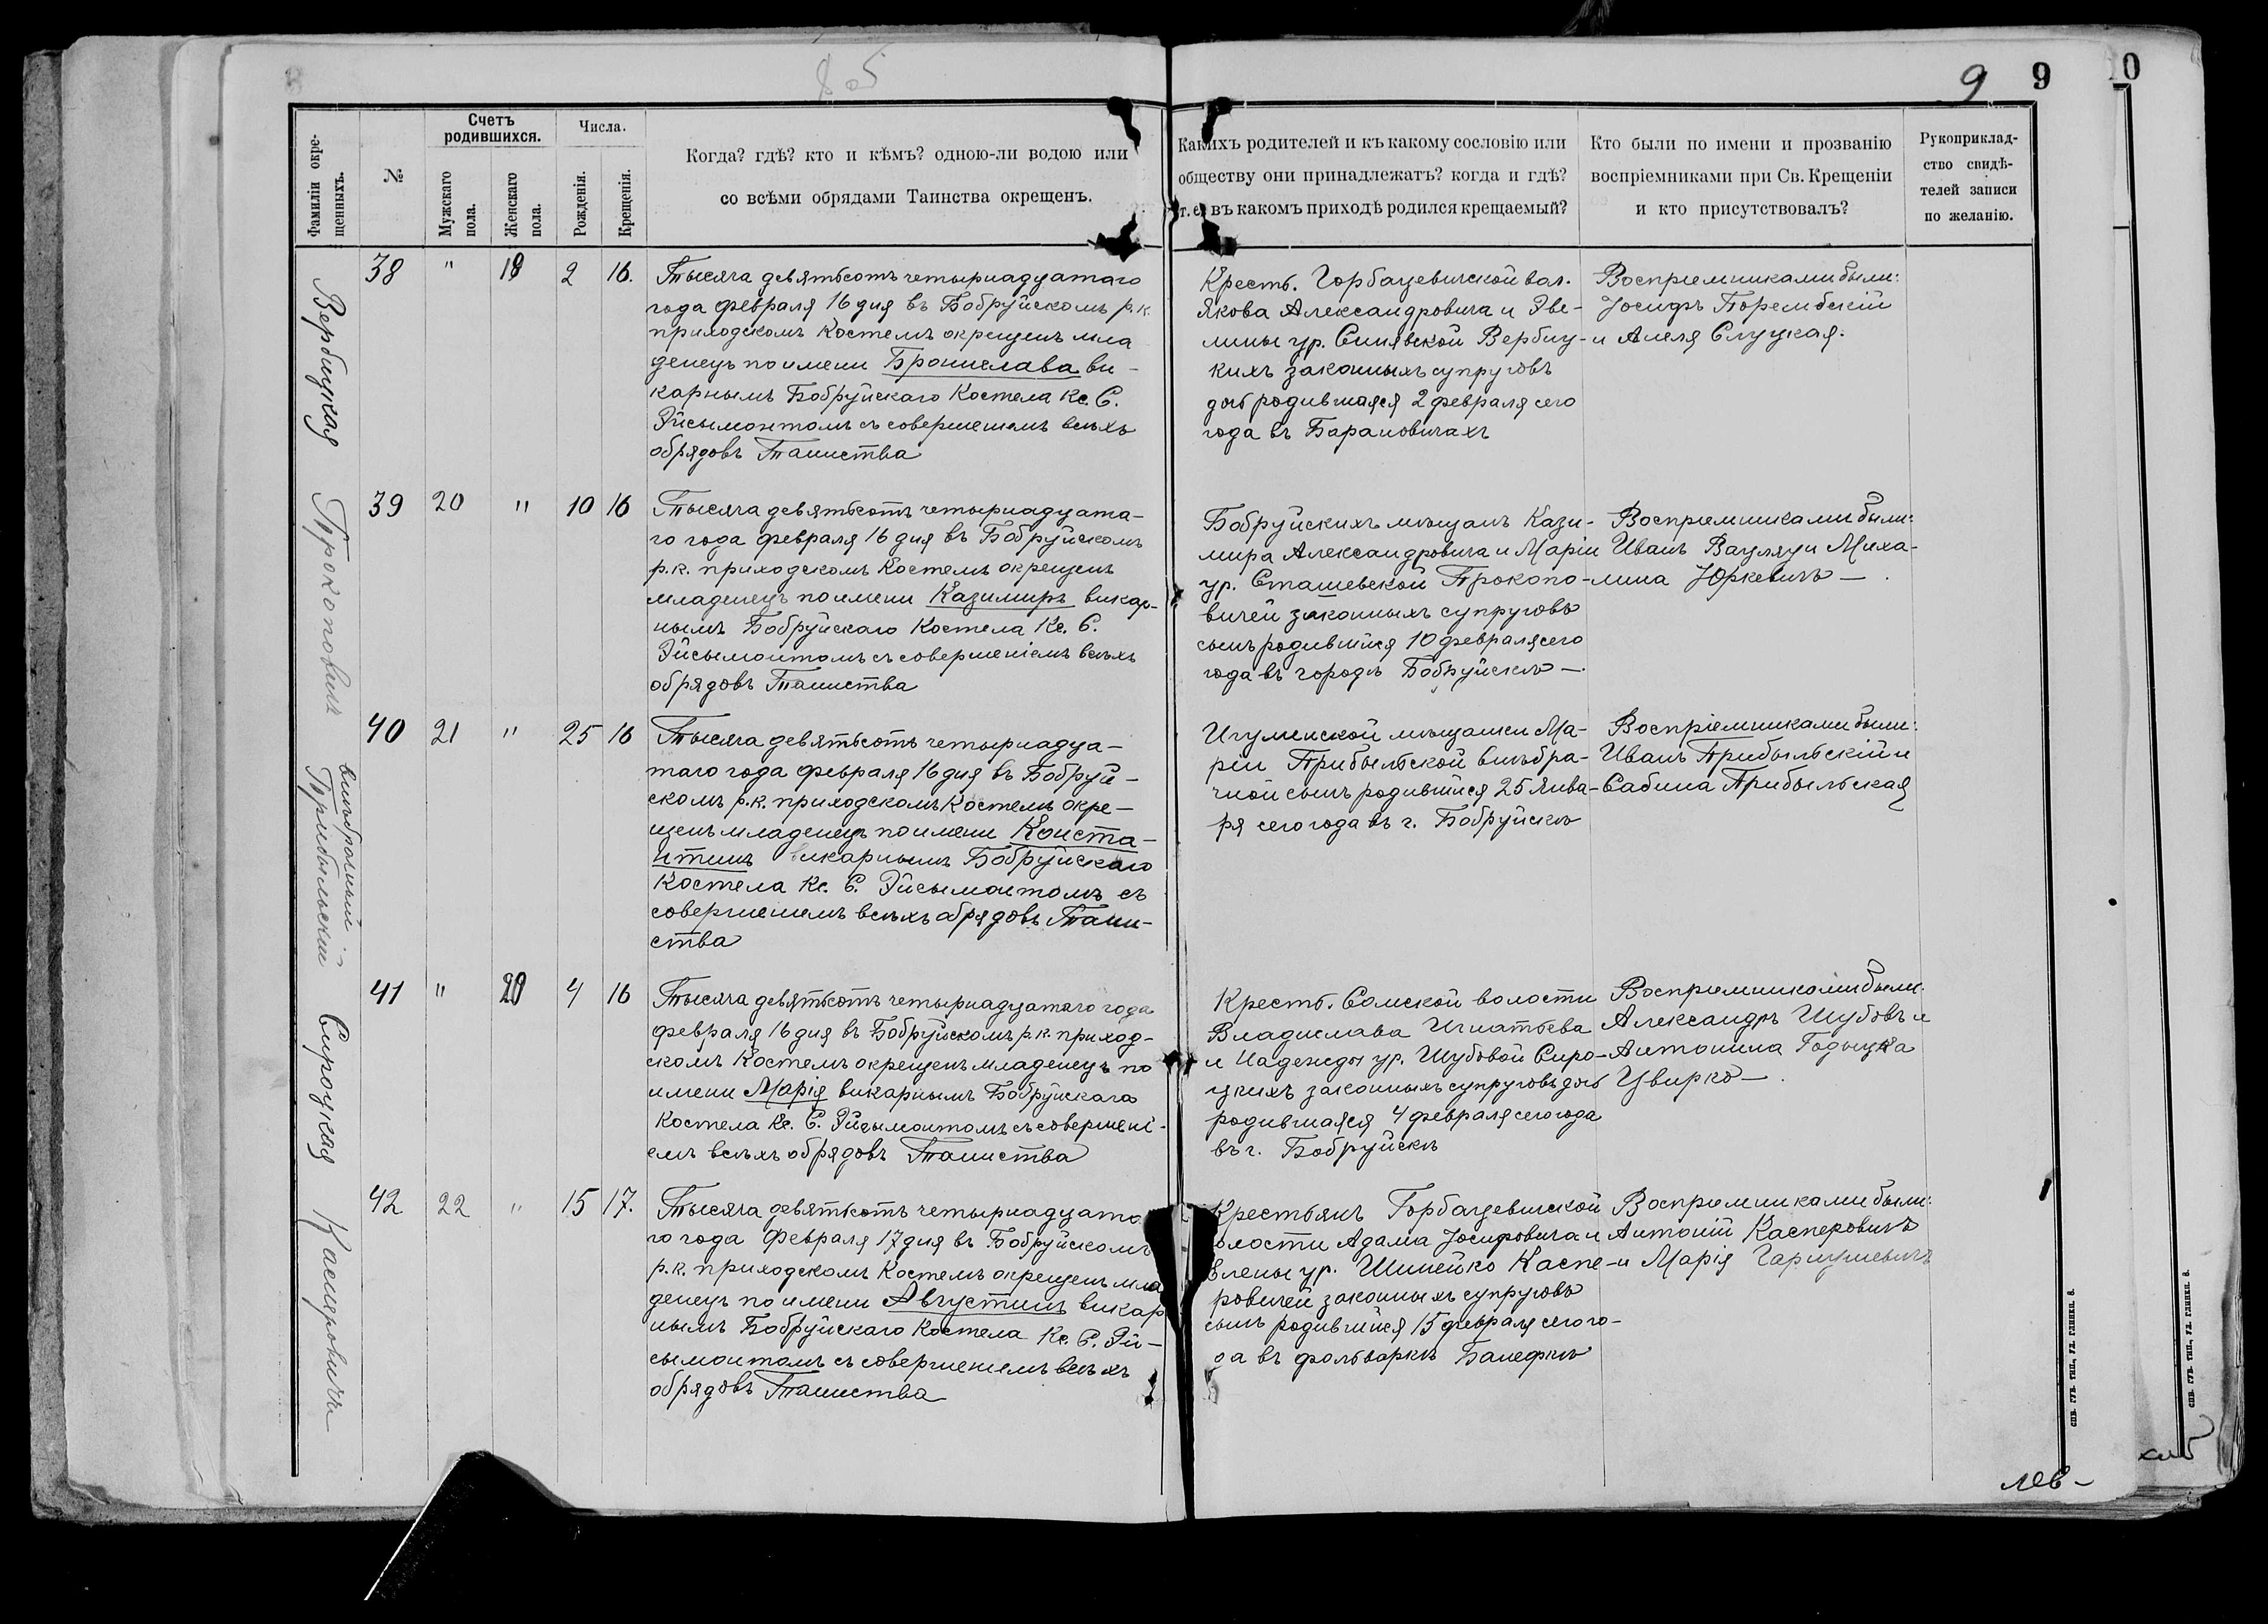 9 9 10
Фамиліи окре-
щенныхъ.
№
Счетъ
родившихся.
Мужскаго
пола.
Женскаго
пола.
Числа.
Рожденія.
Крещенія.
Когда? гдѣ? кто и кѣмъ? одною-ли водою или
со всѣми обрядами Таинства окрещенъ.
Какихъ родителей и къ какому сословію или
обществу они принадлежатъ? когда и гдѣ?
т. е. въ какомъ приходѣ родился крещаемый?
Кто были по имени и прозванію
воспріемниками при Св. Крещеніи
и кто присутствовалъ?
Рукоприклад-
ство свидѣ-
телей записи
по желанію.
Вербицкая
38 " 18 2 16.
Тысяча девятьсотъ четырнадцатаго
года февраля 16 дня въ Бобруйскомъ р.к.
приходскомъ Костелѣ окрещенъ мла
денецъ по имени Брониславa ви-
карнымъ Бобруйскаго Костела Кс. С.
Эйсымонтомъ съ совершенiемъ всѣхъ
обрядовъ Таинства
Крестъ. Горбацевичской вол.
Якова Александровича и Эве-
лины ур. Синявской Вербиц-
кихъ законныхъ супруговъ
дочь родившаяся 2 февраля сего
года въ Барановичахъ
Воспріемниками были:
Іосифъ Порембскій
и Анеля Слуцкая.
Прокоповичъ
39 20 " 10 16
Тысяча девятьсотъ четырнадцата-
го года февраля 16 дня въ Бобруйскомъ
р.к. приходскомъ Костелѣ окрещенъ
младенецъ по имени Казимиръ викар-
нымъ Бобруйскаго Костела Кс. С.
Эйсымонтомъ съ совершеніемъ всѣхъ
обрядовъ Таинства
Бобруйскихъ мѣщанъ Кази-
мира Александровича и Маріи
ур. Сташевской Прокопо-
вичей законныхъ супруговъ
сынъ родившійся 10 февраля сего
года въ городѣ Бобруйскѣ —
Воспріемниками были:
Иванъ Вацляц и Миха-
лина Юркевичъ —
внѣбрачный
Прибыльскій
40 21 " 25 16
Тысяча девятьсотъ четырнадца-
таго года февраля 16 дня въ Бобруй-
скомъ р.к. приходскомъ Костелѣ окре-
щенъ младенецъ по имени Конста-
нтинъ викарнымъ Бобруйскаго
Костела Кс. С. Эйсымонтомъ съ
совершенiемъ всѣхъ обрядовъ Таин-
ства
Игуменской мѣщанки Ма-
ріи Прибыльской внѣбра-
чной сынъ родившійся 25 Янва-
ря сего года въ г. Бобруйскѣ
Воспріемниками были:
Иванъ Прибыльскій и
Сабина Прибыльская
Сироцкая
41 " 20 4 16
Тысяча девятьсотъ четырнадцатаго года
февраля 16 дня въ Бобруйскомъ р.к. приход-
скомъ Костелѣ окрещенъ младенецъ по
имени Марія викарнымъ Бобруйскаго
Костела Кс. С. Эйсымонтомъ съ совершені-
емъ всѣхъ обрядовъ Таинства
Крестъ. Самской волости
Владислава Игнатьева
и Надежды ур. Шубовой Сиро-
цкихъ законныхъ супруговъ дочь
родившаяся 4 февраля сего года
въ г. Бобруйскѣ
Воспріемниками были
Александръ Шубовъ и
Антонина Годыцка
Цвирко —
Касперовичъ
42 22 " 15 17.
Тысяча девятьсотъ четырнадцата
го года Февраля 17 дня въ Бобруйскомъ
р.к. приходскомъ Костелѣ окрещенъ мла
денецъ по имени Августинъ викар
нымъ Бобруйскаго Костела Кс. С. Эй-
сымонтомъ съ совершенiемъ всѣхъ
обрядовъ Таинства
Крестьянъ Горбацевичской
волости Адама Іосифовича и
Елены ур. Шипейко Каспе-
ровичей законныхъ супруговъ
сынъ родившійся 15 февраля сего го-
да въ фольваркѣ
Воспріемниками были:
Антоній Касперовичъ
и Марія
СПБ. ГУБ. ТИП., УЛ. ГЛИНКИ, 6.
СПБ. ГУБ. ТИП., УЛ. ГЛИНКИ, 6.
лев-